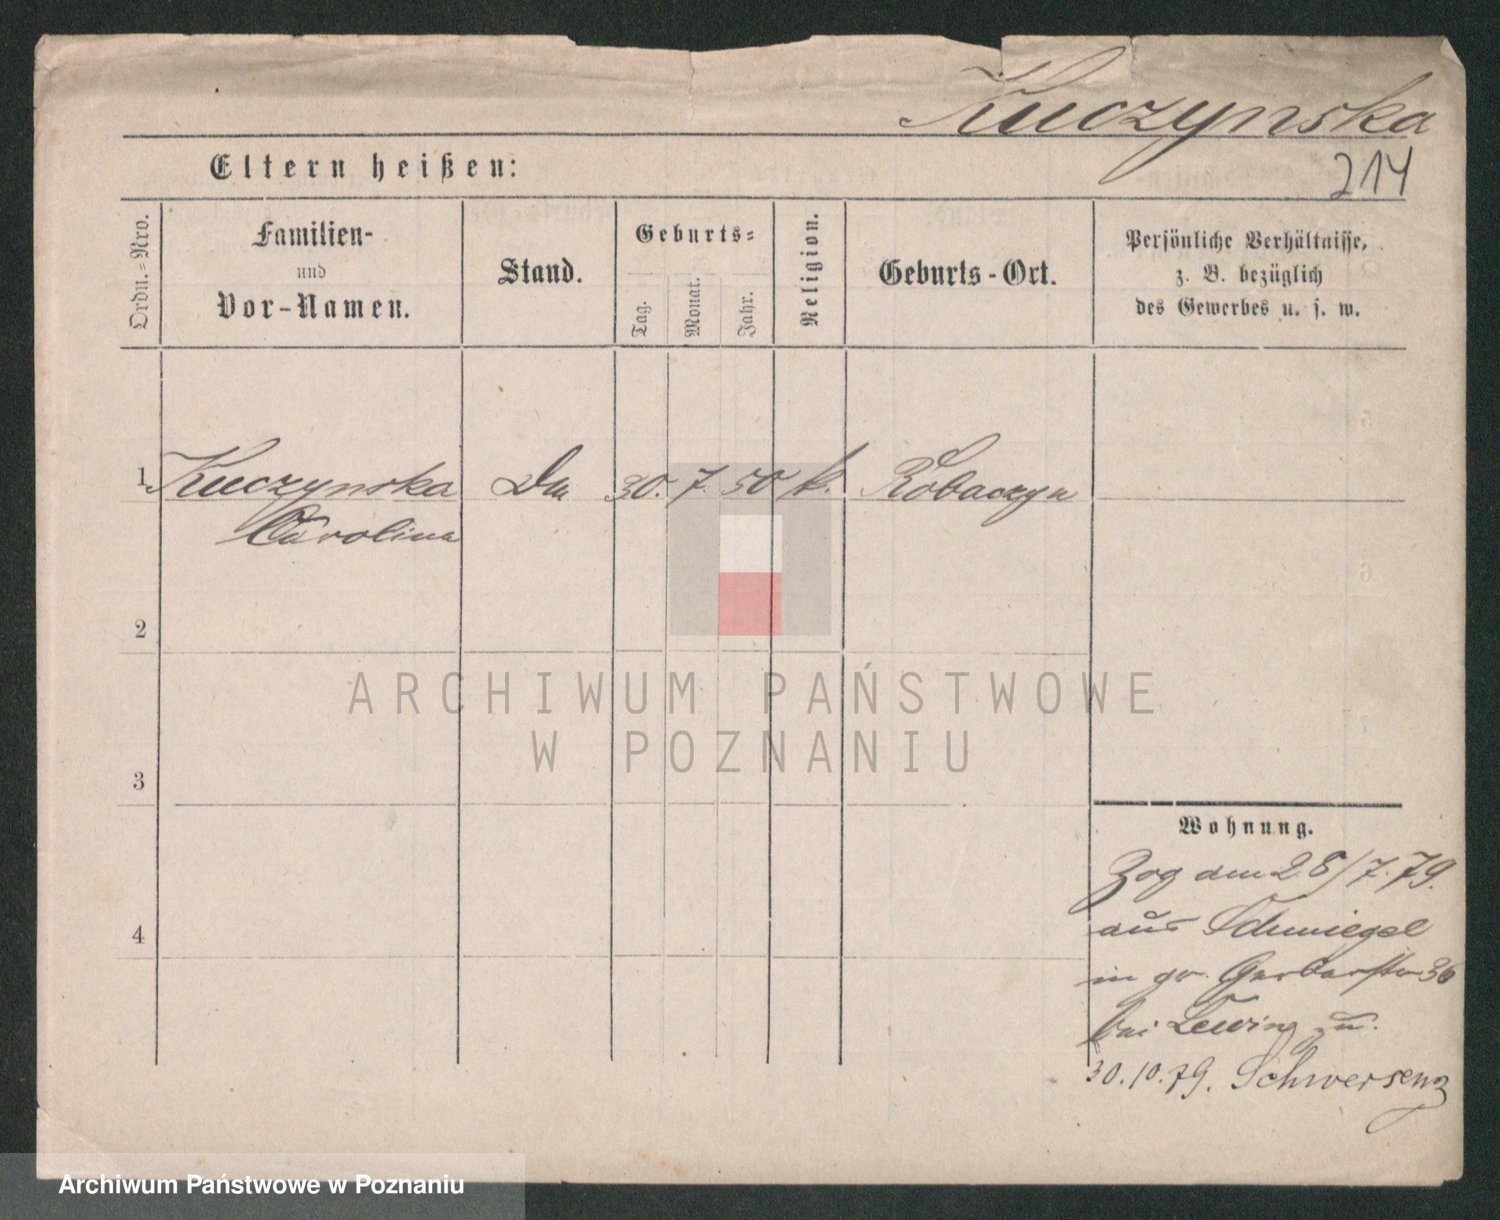 Kuczynska
214
Eltern heißen:
Ordn.=Nro.
Familien-
und
Vor-Namen.
Stand.
Geburts=
Tag.
Monat.
Jahr.
Religion.
Geburts-Ort.
Persönliche Verhältnisse,
z. B. bezüglich
des Gewerbes u. s. w.
1 Kuczynska 30. 7. 50 k. Robaczyn
Carolina
2
3
4
Wohnung.
Zog den 28/7.79.
aus Schmiegel
in gr. Gerberstr 36
bei Lewin
30.10.79. Schwersenz
ARCHIWUM PAŃSTWOWE
W POZNANIU
Archiwum Państwowe w Poznaniu